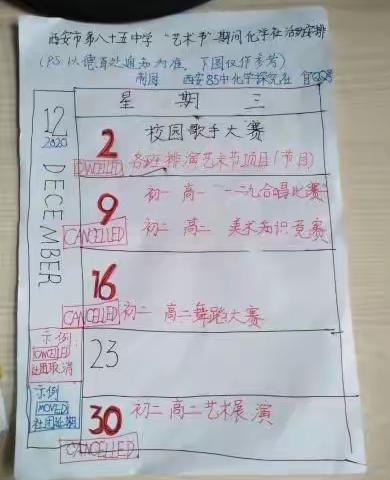 西安市第八十五中学“艺术节”期间化学社活动安排
(P.S: 以德育处通知为准, 下图仅作参考)
制图 西安85中化学探究社
星期三
12
2020
DECEMBER
2
校园歌手大赛
CANCELLED
各班排演艺术节项目(节目)
9
初一 高一 一二·九合唱比赛
CANCELLED
初一 高二 美术知识竞赛
16
CANCELLED
初二 高二舞蹈大赛
示例:
CANCELLED
社团取消
23
示例
MOVED
社团延期
30
初二 高二艺术展演
CANCELLED